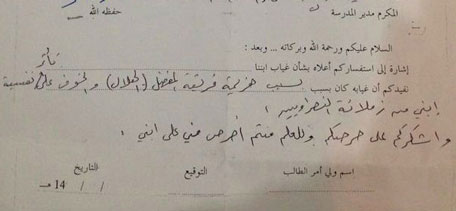 المكرم مدير المدرسة حفظه الله
السلام عليكم ورحمة الله وبركاته ... وبعد :
إشارة إلى استفساركم أعلاه بشأن غياب ابننا
تأثر
نفيدكم أن غيابه كان بسبب بسبب هزيمة فريقه المفضل (الهلال) والخوف على نفسية
إبني من زملائه النصراويين .
واشكركم على حرصكم وللعلم فأنتم أحرص مني على ابني .
اسم ولي أمر الطالب التوقيع التاريخ
/ / 14 هـ